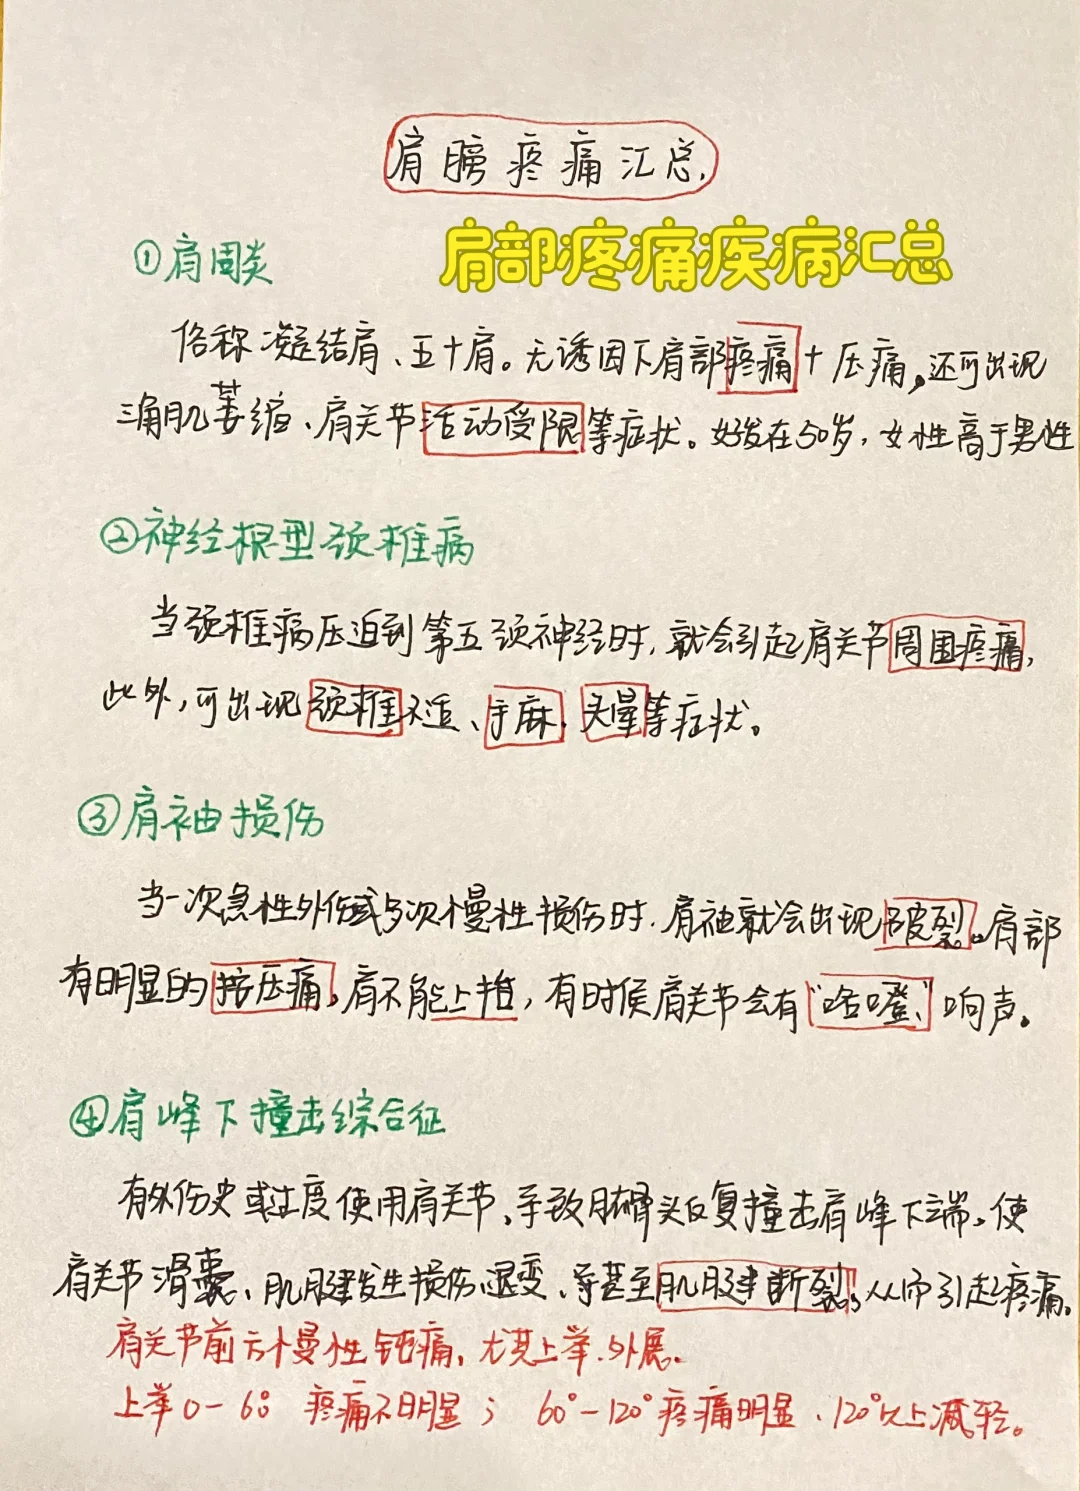 肩膀疼痛汇总.
肩部疼痛疾病汇总
①肩周炎
俗称凝结肩、五十肩。无诱因下肩部疼痛+压痛,还可出现
三角肌萎缩、肩关节活动受限等症状。好发在50岁,女性高于男性
②神经根型颈椎病
当颈椎病压迫到第五颈神经时,就会引起肩关节周围疼痛,
此外,可出现颈椎不适、手麻、头晕等症状。
③肩袖损伤
当一次急性外伤或多次慢性损伤时.肩袖就会出现破裂。肩部
有明显的按压痛,肩不能上抬,有时候肩关节会有"咯噔"响声。
④肩峰下撞击综合征
有外伤史或过度使用肩关节,导致肱骨头反复撞击肩峰下端,使
肩关节滑囊、肌腱发生损伤退变、甚至肌腱断裂,从而引起疼痛。
肩关节前方慢性钝痛,尤其上举.外展.
上举0-60 疼痛不明显; 60°-120°疼痛明显、120°以上减轻。